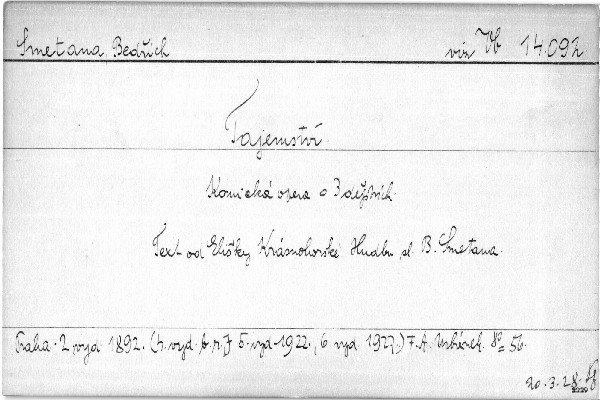 Smetana, Bedřich viz Vb 14092
Tajemství.
Komická opera o 3 dějstvích.
Text od Elišky Krásnohorské Hudbu sl. B. Smetana.
Praha. 2 vyd 1892. (4. vyd. b. r.) 5. vyd 1922., 6 vyd 1927.) F. A. Urbánek. 8° = 56.
20. 3. 28.